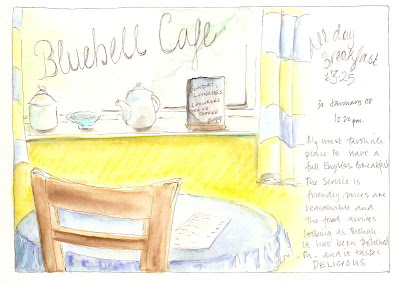 Bluebell Cafe
SUNDAY
LUNCHES
All day
Breakfast
£3.25
31 January 08
12.20pm.
My most favourite
place to have a
full English Breakfast
The Service is
friendly, prices are
reasonable and
the food arrives
looking as though
it has been polished
- Oh - and it tastes
DELICIOUS